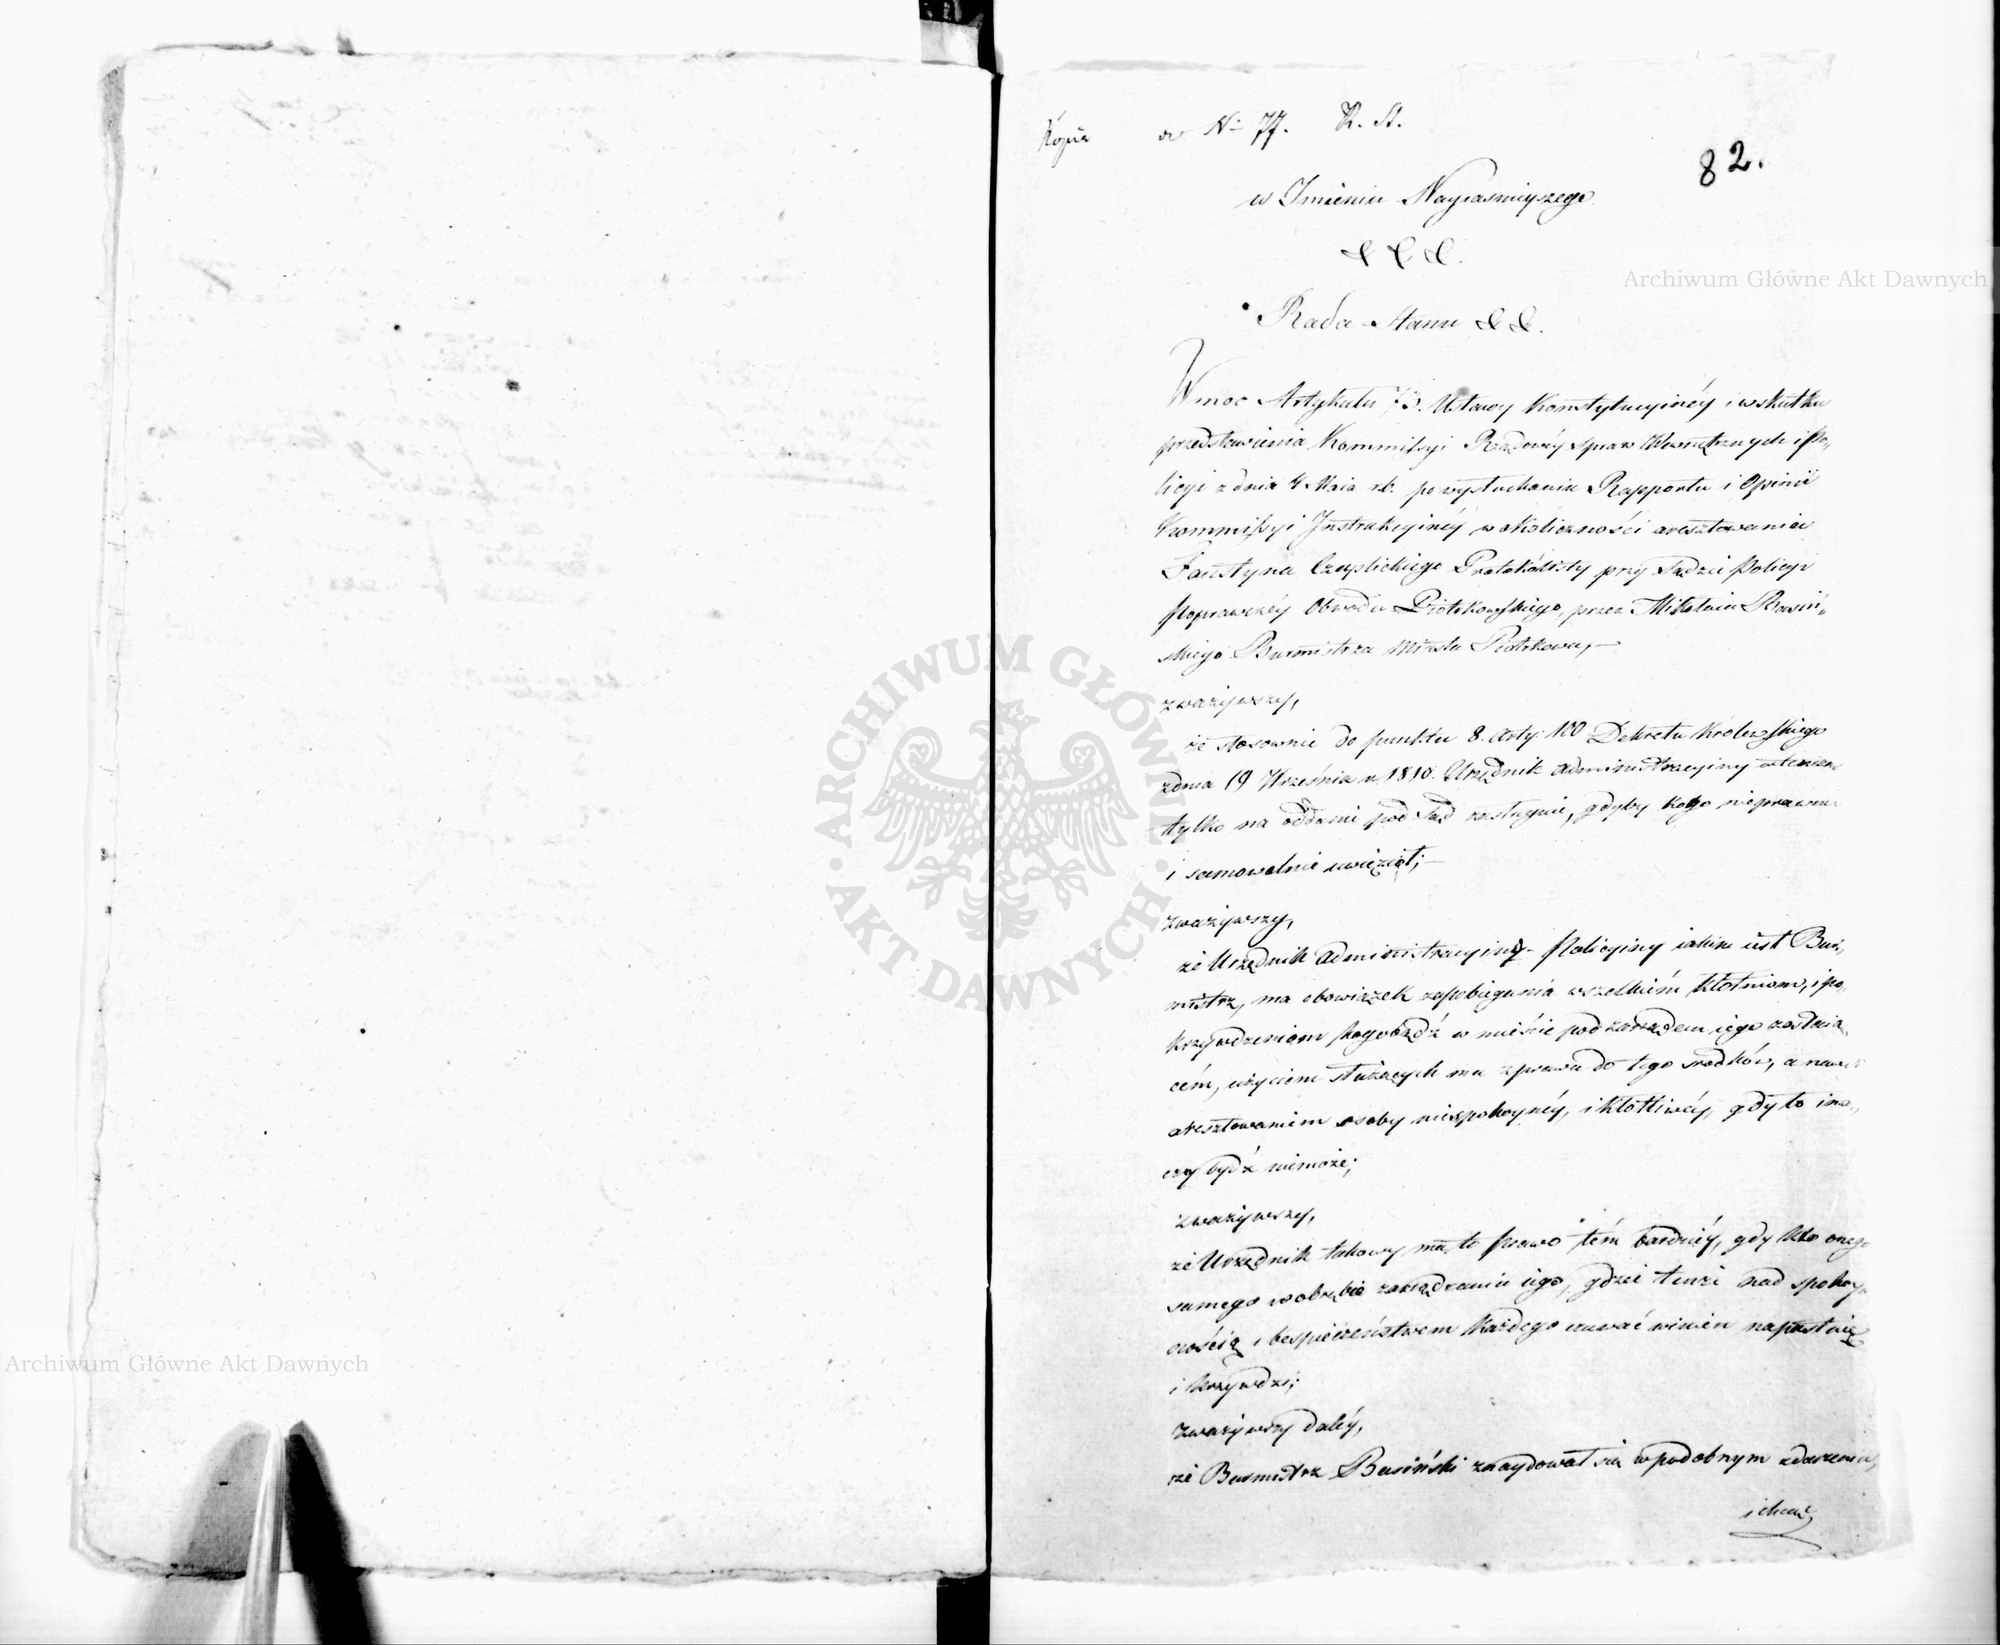 Kopia w Nr 77. R. St.
82.
w Imieniu Nayiasnieyszego
&&&.
Rada Stanu &&.
W moc Artykułu 73. Ustawy Konstytucyinéy i w skutku
przedstawienia Kommissyi Rządowéy Spraw Wewnętrznych i Po„
licyi z dnia 4 Maia r.b. po wysłuchaniu Rapportu i Opinii
Kommissyi Instrukcyinéy w okoliczności aresztowania
Faustyna Czaplickiego Protokólisty przy Sądzie Policyi
Poprawczéy Obwodu Piotrkowskiego, przez Mikołaia Busiń„
skiego Burmistrza Miasta Piotrkowa,—
zważywszy,
że stosownie do punktu 8. Arty: 100 Dekretu Królewskiego
z dnia 19 Września r. 1810. Urzędnik Administracyiny wtenczas
tylko na oddanie pod Sąd zasługuie, gdyby kogo nieprawnie
i samowolnie uwięził;—
zważywszy,
że Urzędnik Administracyiny Policyiny iakim iest Bur„
mistrz, ma obowiązek zapobiegania wszelkim kłótniom, i po„
krzywdzeniom kogobądź w mieście pod zarządem iego zostaią„
cém, użyciem służących mu z prawa do tego srodków, a nawet
aresztowaniem osoby niespokoynéy, i kłótliwéy, gdy to ina„
czy bydź niemoże;
zważywszy,
że Urzędnik takowy ma to prawo tém bardziéy, gdy kto onego
samego w obrębie zarządzania iego, gdzie tenże nad spokoy„
nością i bespieczeństwem każdego czuwać winien napastuie
i krzywdzi;
zważywszy daléy,
że Burmistrz Busiński znaydował się w podobnym zdarzeniu,
i chcąc
Archiwum Główne Akt Dawnych
Archiwum Główne Akt Dawnych
ARCHIWUM GŁÓWNE · AKT DAWNYCH ·